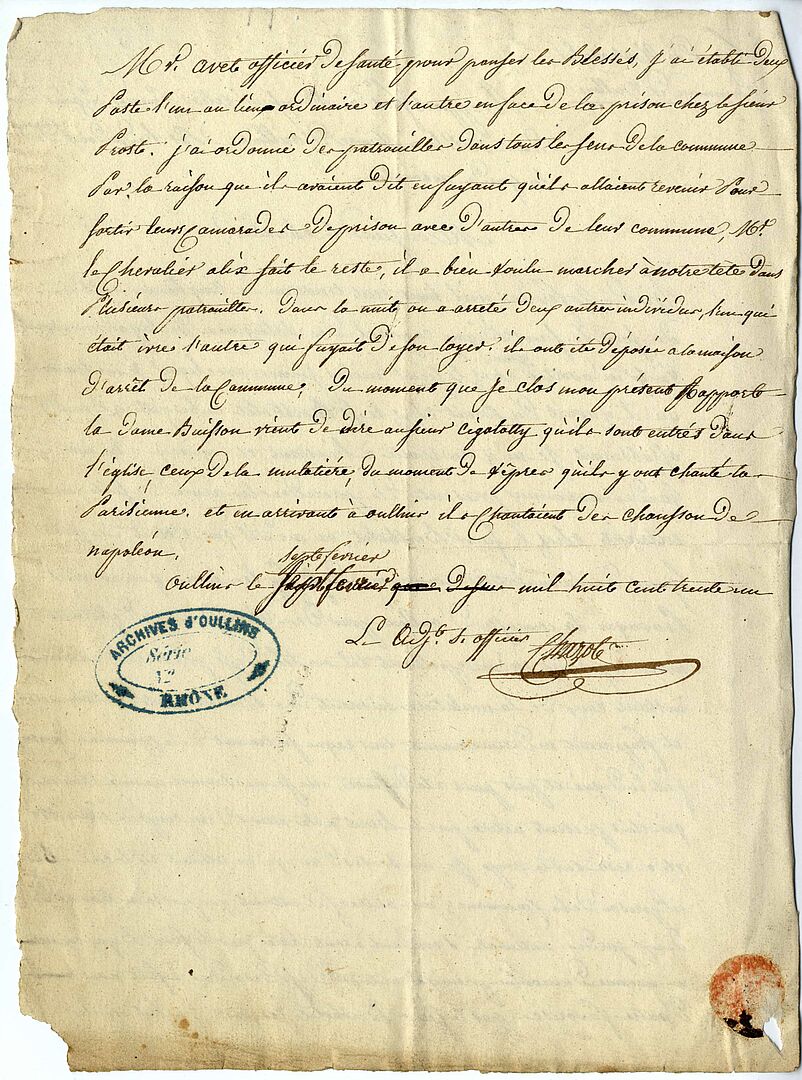 Mr. avete officier de santé pour panser les Blessés, j'ai établi deux
Poste l'un au lieu ordinaire et l'autre en face de la prison chez le sieur
Proste. j'ai ordonné des patrouilles dans tous les sens de la commune
Par la raison que ils avaient dit en fuyant qu'ils allaient revenir Pour
sortir leurs Camarades de prison avec d'autres de leur commune, Mr.
le Chevalier alix fait le reste, il a bien voulu marcher à notre tete dans
Plusieurs patrouilles. dans la nuit on a arreté deux autres individus, l'un qui
était ivre l'autre qui fuyait de son loyer. ils ont été déposés a la maison
d'arrêt de la Commune, du moment que je clos mon présent Rapporte
la dame Buisson vient de dire au sieur cigolotty qu'ils sont entrés dans
l'église, ceux de la mulatiére, du moment de vêpres qu'ils y ont chanté la
Parisienne. et en arrivant à oullins ils Chantaient des chansson de
napoleon.
septe fevrier
Oullins le mil huit cent trente un
L. Adjt. S. officier
ARCHIVES d'OULLINS
Série
No
RHÔNE